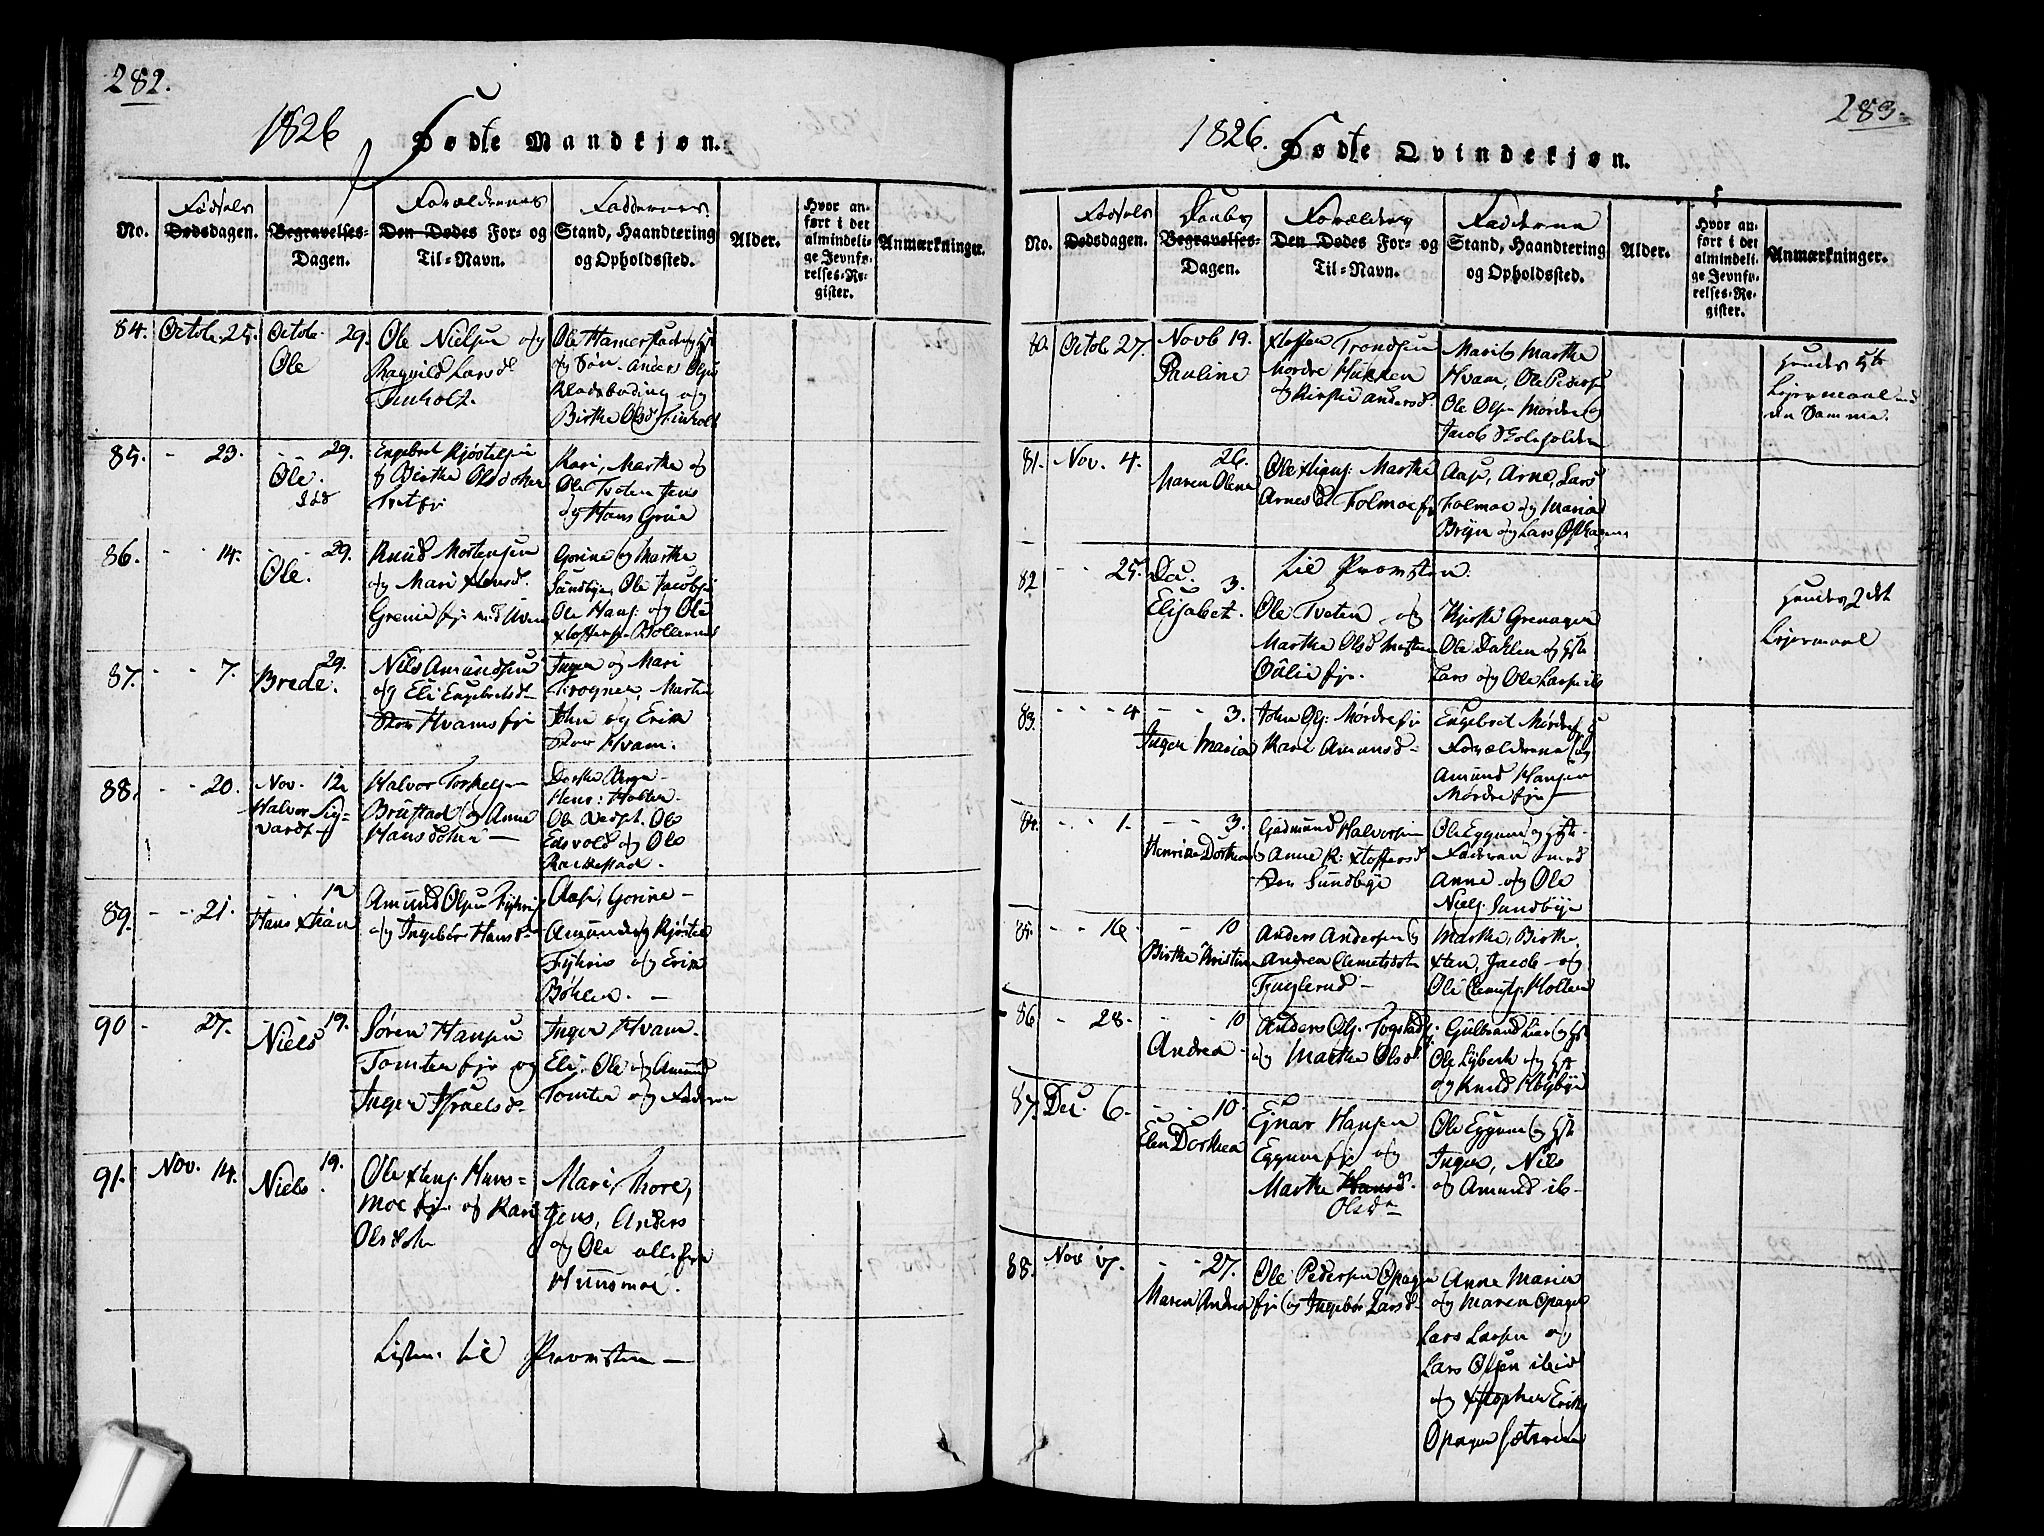 282.
1826
Fødte Mandkjøn.
No.
Fødsels
Dødsdagen.
Begravelses-
Dagen.
Forældrenes
Den Dødes For- og
Til-Navn.
Faddernes
Stand, Haandtering
og Opholdssted.
Alder.
Hvor an-
ført i det
almindeli-
ge Jevnfø-
relses-Re-
gister.
Anmærkninger.
84. Octob. 25. Octob. 29.
Ole
Ole Nielsen og
Ragnild Larsd
Finholt.
Ole Hamerstad og
og Søn. Anders
og
Birthe Olsd Finholt
85. - 23. - - 29.
Ole.
Engebret Kjøstelsen
& Birthe Olsdotter
Kari, Marthe og
Ole Tveten Jens
og Hans Grue
86. - - 14. - - 29.
Ole.
Knud Mortensen
og Mari
Gorine og Marthe
Sundbye, Ole Jacobsen
Ole Hans. og Ole
87. - - 7. 29.
Brede.
Nils Amundsen
og Eli Engebretsd
Stor Hvams eje
Inger og Mari
Frogner, Martin
John og Erik
Stor Hvam.
88. - - 20. Nov. 12
Halvor Sig-
vardt
Halvor Torkels.
Brustad og Anne
Hansdotter
Dorthe
Hans: Holter
Ole
Eidsvold og Ole
Rackestad.
89. - - 21. - 12
Hans Xtian
Amund Olsen
og Ingebor Hansd
Aase, Gorine -
Amund og Kjøstel
og Erik
Bøhler. -
90 - 27. - 19.
Niels
Søren Hansen
Tomter eje og
Inger Israelsd.
Inger Hvam.
Eli, Ole og Amund
Tomter og Faderen
91. Nov. 14. 19.
Niels.
Ole Xtens. Huus=
moe eje og Kari
Olsdotr
Mari, Thore,
Jens, Anders
og Ole alle fra
Huusmoe.
Listen til Provsten -
283.
1826.
Fødte Qvindekjøn.
No.
Fødsels
Dødsdagen.
Daabs
Begravelses-
Dagen.
Forældrene
Den Dødes For- og
Til-Navn.
Fadderne
Stand, Haandtering
og Opholdssted.
Alder.
Hvor an-
ført i det
almindeli-
ge Jevnfø-
relses-Re-
gister.
Anmærkninger.
80. Octob 27. Novb 19.
Pauline
Xtoffer Trondsen
Mordre
og Kirstie Andersd.
Marie, Marthe
Hvam, Ole Peders
Ole Ols. Mordre og
Jacob
hendes 5te
Lejermaal med
den Samme.
81. Nov. 4. 26.
Maren Olene
Ole Marthe
Arnesd Folmoe eje
Aase, Arne, Lars
Folmoe og Maria
og Lars
82 - - 25. Dec. 3.
Elisabet.
til Provsten.
Ole Tveten og
Marthe Olsd
eje.
Kjersti Grenager
Ole Dahlen og
Lars og Ole Larsen ib
hendes 2det
Lejermaal
83. - - - 4 - - 3.
Inger Maria
John Ols. Mørdre eje
Kari Amunsd -
Engebret Mørdre
Forældrene og
Amund Hansen
Mørdre eje
84. - - 1. - - 3.
Henrikke Dorthea
Gudmund Halvorsen
& Anne K: Xtoffersd
Stor Sundbye
Ole Eggum og
Faderen med
Anne og Ole
Niels. Sundbye
85. - - 16. - 10
Birthe Kristine
Anders Andersen og
Andrea Clemetsdotr
Fuglerud -
Marthe, Birthe,
Xten, Jacob og
Ole Clemets. Holter
86 - 28. - - 10
Andrea -
Anders Ols. Fogstad
og Marthe Olsd.
Gulbrand Lier og
Ole Lyberk og
og Knud Høybye
87. Dec. 6. - - 10.
Elen Dorthea
Ejnar Hansen
Eggum eje og
Marthe Hansd.
Olsdr
Ole Eggum og
Inger, Nils
og Amund ib -
88. Nov 17. - - 27.
Maren Andrea
Ole Pedersen Opager
eje og Ingebor Larsd.
Anne Maria
og Maren Opager
Lars Larsen og
Lars Olsen ibid
og Xstopher Eriks
Opager